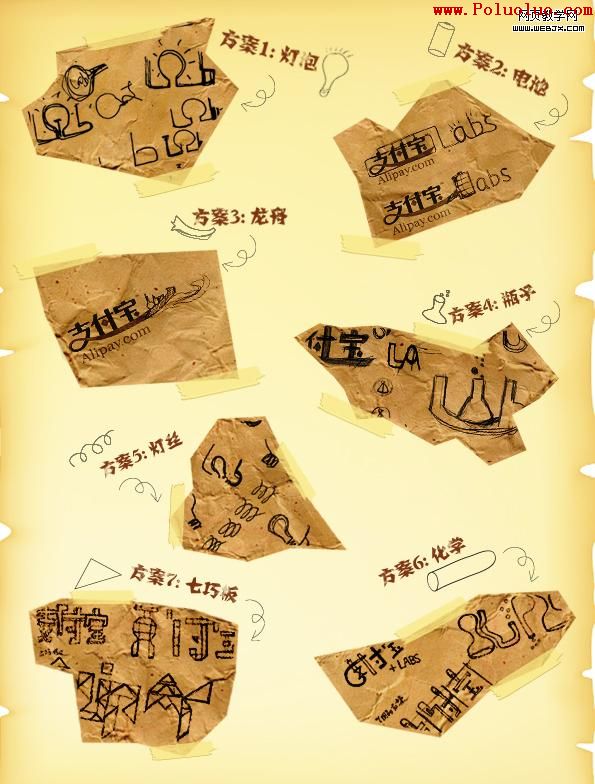 www.Poluoluo.com
网页教学网
www.WEBJX.com
方案1: 灯泡
方案2: 电池
Labs
支付宝
Alipay.com
支付宝 Labs
Alipay.com
方案3: 龙舟
支付宝
Alipay.com
方案4: 瓶子
付宝 LA
方案5: 灯丝
方案6: 化学
方案7: 七巧板
支付宝
付宝
支付宝
+LABS
付宝